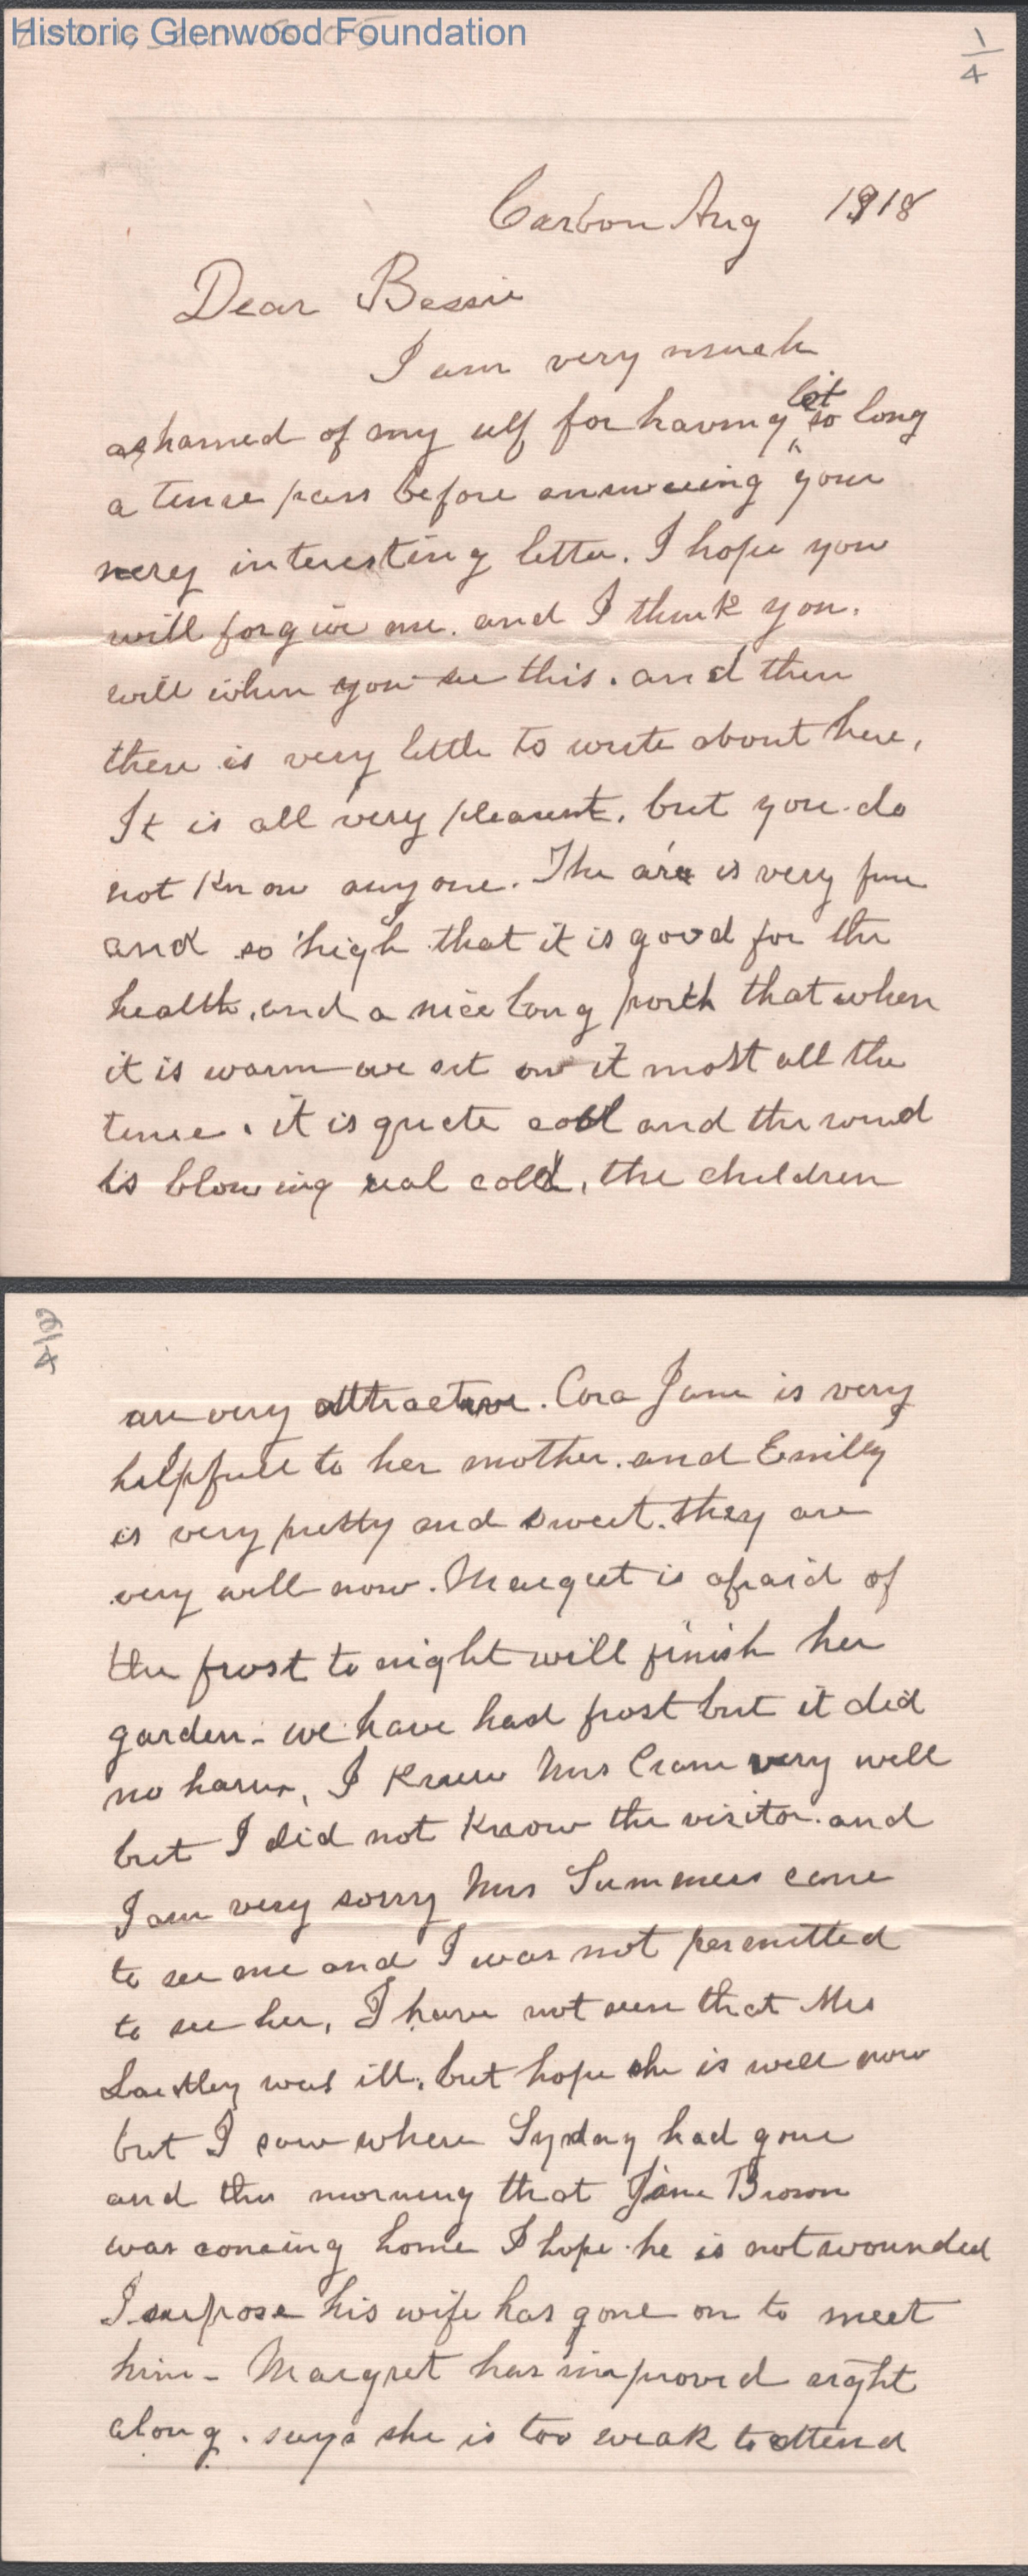 Historic Glenwood Foundation
1/4
Carbon Aug 1918
Dear Bessie
I am very much
ashamed of my self for having let so long
a time pass before answering your
very interesting letter. I hope you
will forgive me. and I think you.
will when you see this. and then
there is very little to write about here,
It is all very pleasent, but you do
not know any one. The are is very fine
and so high that it is good for the
health, and a nice long porch that when
it is warm we sit on it most all the
time. it is quite cold and the wind
is blowing real cold, the children
2/4
are very attractive. Cora Jane is very
helpfull to her mother. and Emilly
is very pretty and sweet. they are
very well now. Margret is afraid of
the frost to night will finish her
garden - we have had frost but it did
no harm, I knew Mrs Crane very well
but I did not know the visitor. and
I am very sorry Mrs Summers came
to see me and I was not permitted
to see her, I have not seen that Mrs
was ill, but hope she is well now
but I saw where had gone
and this morning that Brown
was comeing home I hope he is not wounded
I supose his wife has gone on to meet
him - Margret has improved right
along. says she is too weak to attend